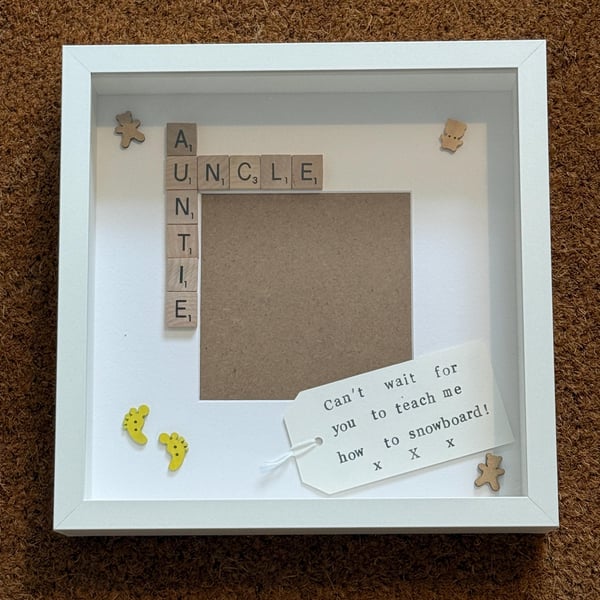 AUNTIE
UNCLE
Can't wait for
you to teach me
how to snowboard!
x X x